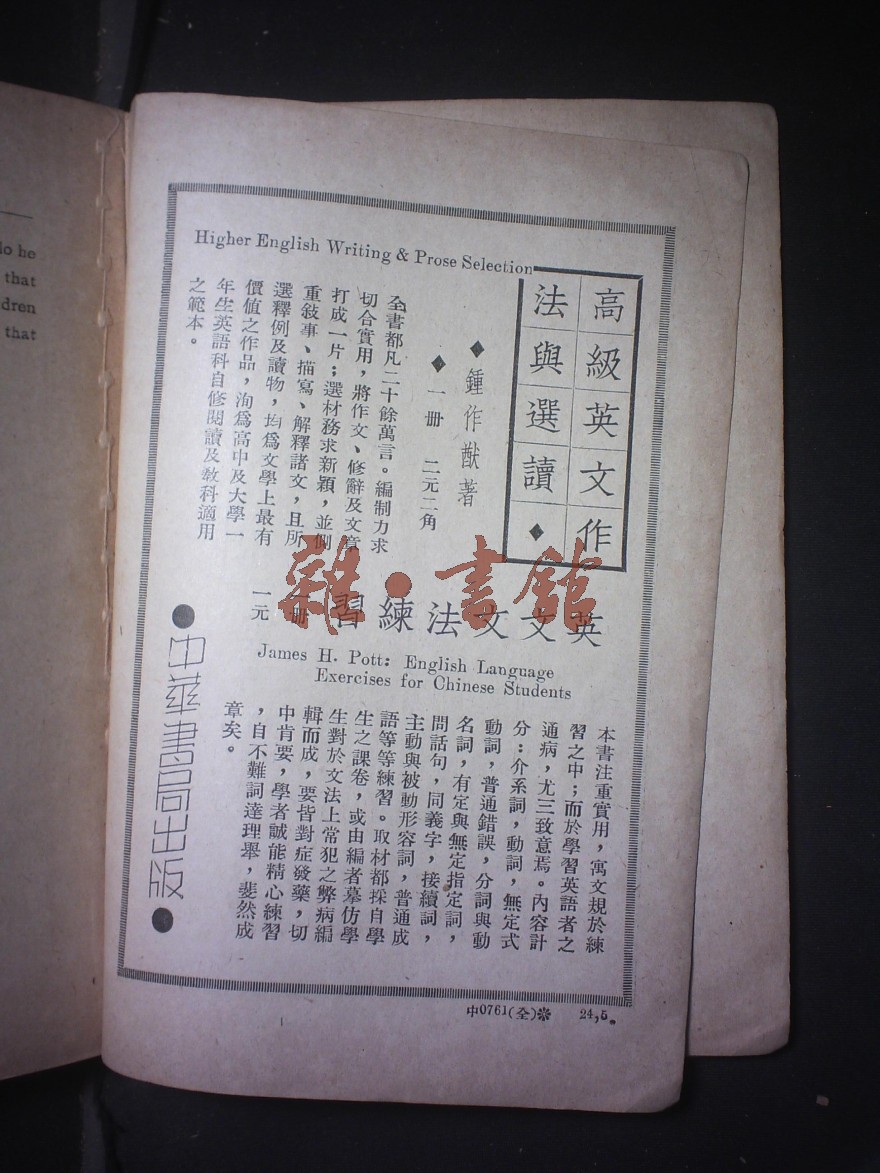 lo he
that
dren
that
Higher English Writing & Prose Selection
高級英文作
法與選讀◆
◆鍾作猷著
◆一冊 二元二角
全書都凡二十餘萬言。編制力求
切合實用，將作文、修辭及文章
打成一片；選材務求新穎，並側
重敍事、描寫、解釋諸文，且所
選釋例及讀物，均爲文學上最有
價值之作品，洵爲高中及大學一
年生英語科自修閱讀及敎科適用
之範本。
雜·書館
英文文法練習
一冊
一元
James H. Pott: English Language
Exercises for Chinese Students
本書注重實用，寓文規於練
習之中；而於學習英語者之
通病，尤三致意焉。內容計
分：介系詞，動詞，無定式
動詞，普通錯誤，分詞與動
名詞，有定與無定指定詞，
問話句，同義字，接續詞，
主動與被動形容詞，普通成
語等等練習。取材都採自學
生之課卷，或由編者摹仿學
生對於文法上常犯之弊病編
輯而成，要皆對症發藥，切
中肯要，學者誠能精心練習
，自不難詞達理舉，斐然成
章矣。
●中華書局出版●
中0761(全)✽ 24,5。